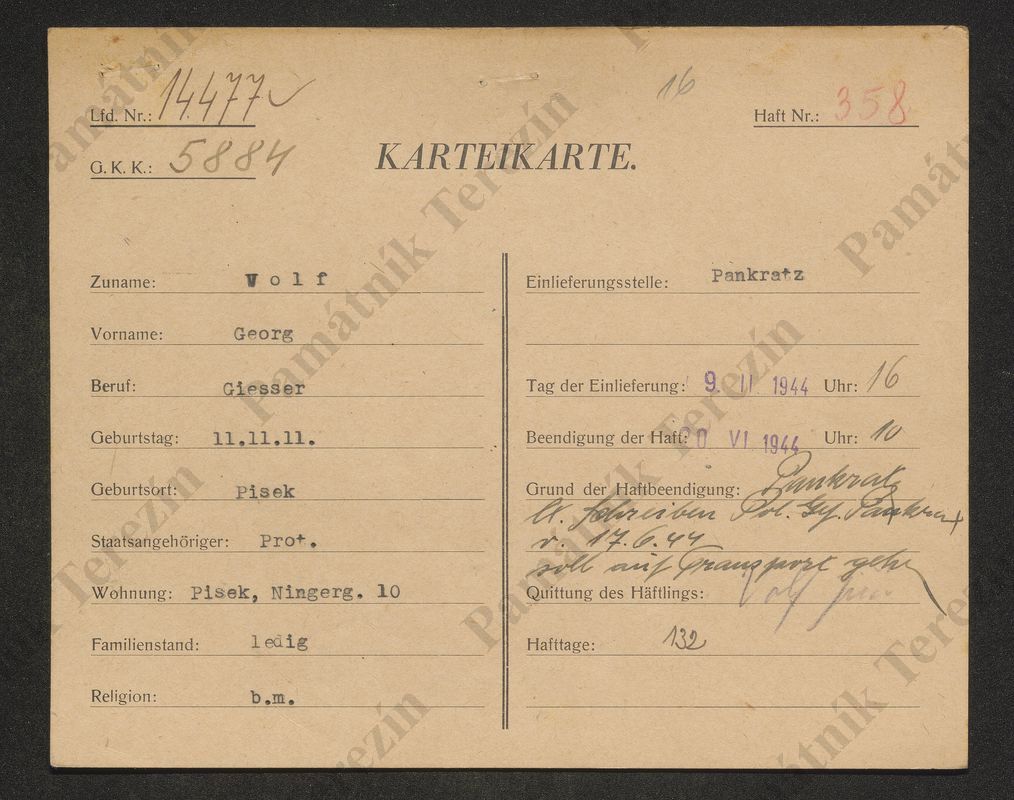 Lfd. Nr.: 14.477
16
Haft Nr.: 358
G. K. K.: 5884
KARTEIKARTE.
Zuname: Wolf
Vorname: Georg
Beruf: Giesser
Geburtstag: 11.11.11.
Geburtsort: Pisek
Staatsangehöriger: Prot.
Wohnung: Pisek, Ningerg. 10
Familienstand: ledig
Religion: b.m.
Einlieferungsstelle: Pankratz
Tag der Einlieferung: 9. II. 1944 Uhr: 16
Beendigung der Haft: 0 VI. 1944 Uhr: 10
Grund der Haftbeendigung: Pankratz
lt. Schreiben Pol. Gef. Pankratz
v. 17.6.44
soll auf Transport gehen
Quittung des Häftlings: Volf
Hafttage: 132
Památník Terezín